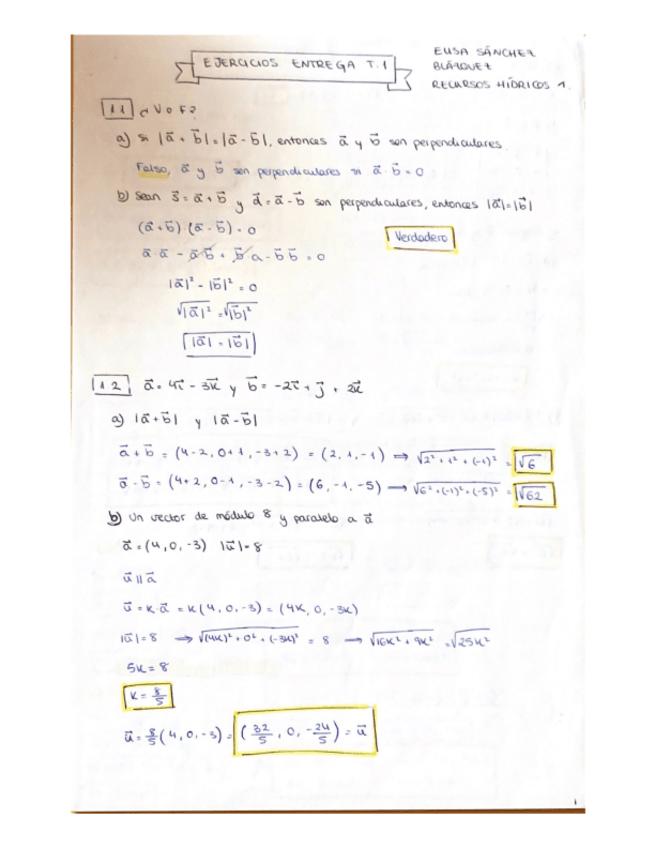 EJERCICIOS ENTREGA T.1
ELISA SÁNCHEZ
BLÁZQUEZ
RECURSOS HÍDRICOS 1.
1.1 ¿V o F?
a) si |a⃗ + b⃗| = |a⃗ - b⃗|, entonces a⃗ y b⃗ son perpendiculares.
Falso, a⃗ y b⃗ son perpendiculares si a⃗ · b⃗ = 0
b) Sean s⃗ = a⃗ + b⃗ y d⃗ = a⃗ - b⃗ son perpendiculares, entonces |a⃗| = |b⃗|
(a⃗ + b⃗) · (a⃗ - b⃗) = 0
Verdadero
a⃗ · a⃗ - a⃗ · b⃗ + b⃗ · a - b⃗ b⃗ = 0
|a⃗|² - |b⃗|² = 0
√|a⃗|² = √|b⃗|²
|a⃗| = |b⃗|
1.2 a⃗ = 4i⃗ - 3k⃗ y b⃗ = -2i⃗ + j⃗ + 2k⃗
a) |a⃗ + b⃗| y |a⃗ - b⃗|
a⃗ + b⃗ = (4-2, 0+1, -3+2) = (2, 1, -1) ⟹ √(2² + 1² + (-1)²) = √6
a⃗ - b⃗ = (4+2, 0-1, -3-2) = (6, -1, -5) ⟹ √(6² + (-1)² + (-5)²) = √62
b) Un vector de módulo 8 y paralelo a a⃗
a⃗ = (4, 0, -3) |u⃗| = 8
u⃗ || a⃗
u⃗ = k · a⃗ = k(4, 0, -3) = (4k, 0, -3k)
|u⃗| = 8 ⟹ √((4k)² + 0² + (-3k)²) = 8 ⟹ √(16k² + 9k²) = √25k²
5k = 8
k = 8/5
u⃗ = 8/5 (4, 0, -3) = (32/5, 0, -24/5) = u⃗
1